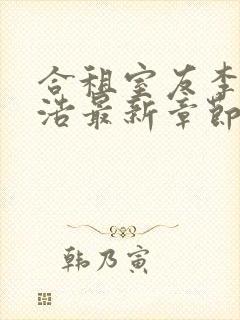 合租室友李
浩最新章節
韩乃寅